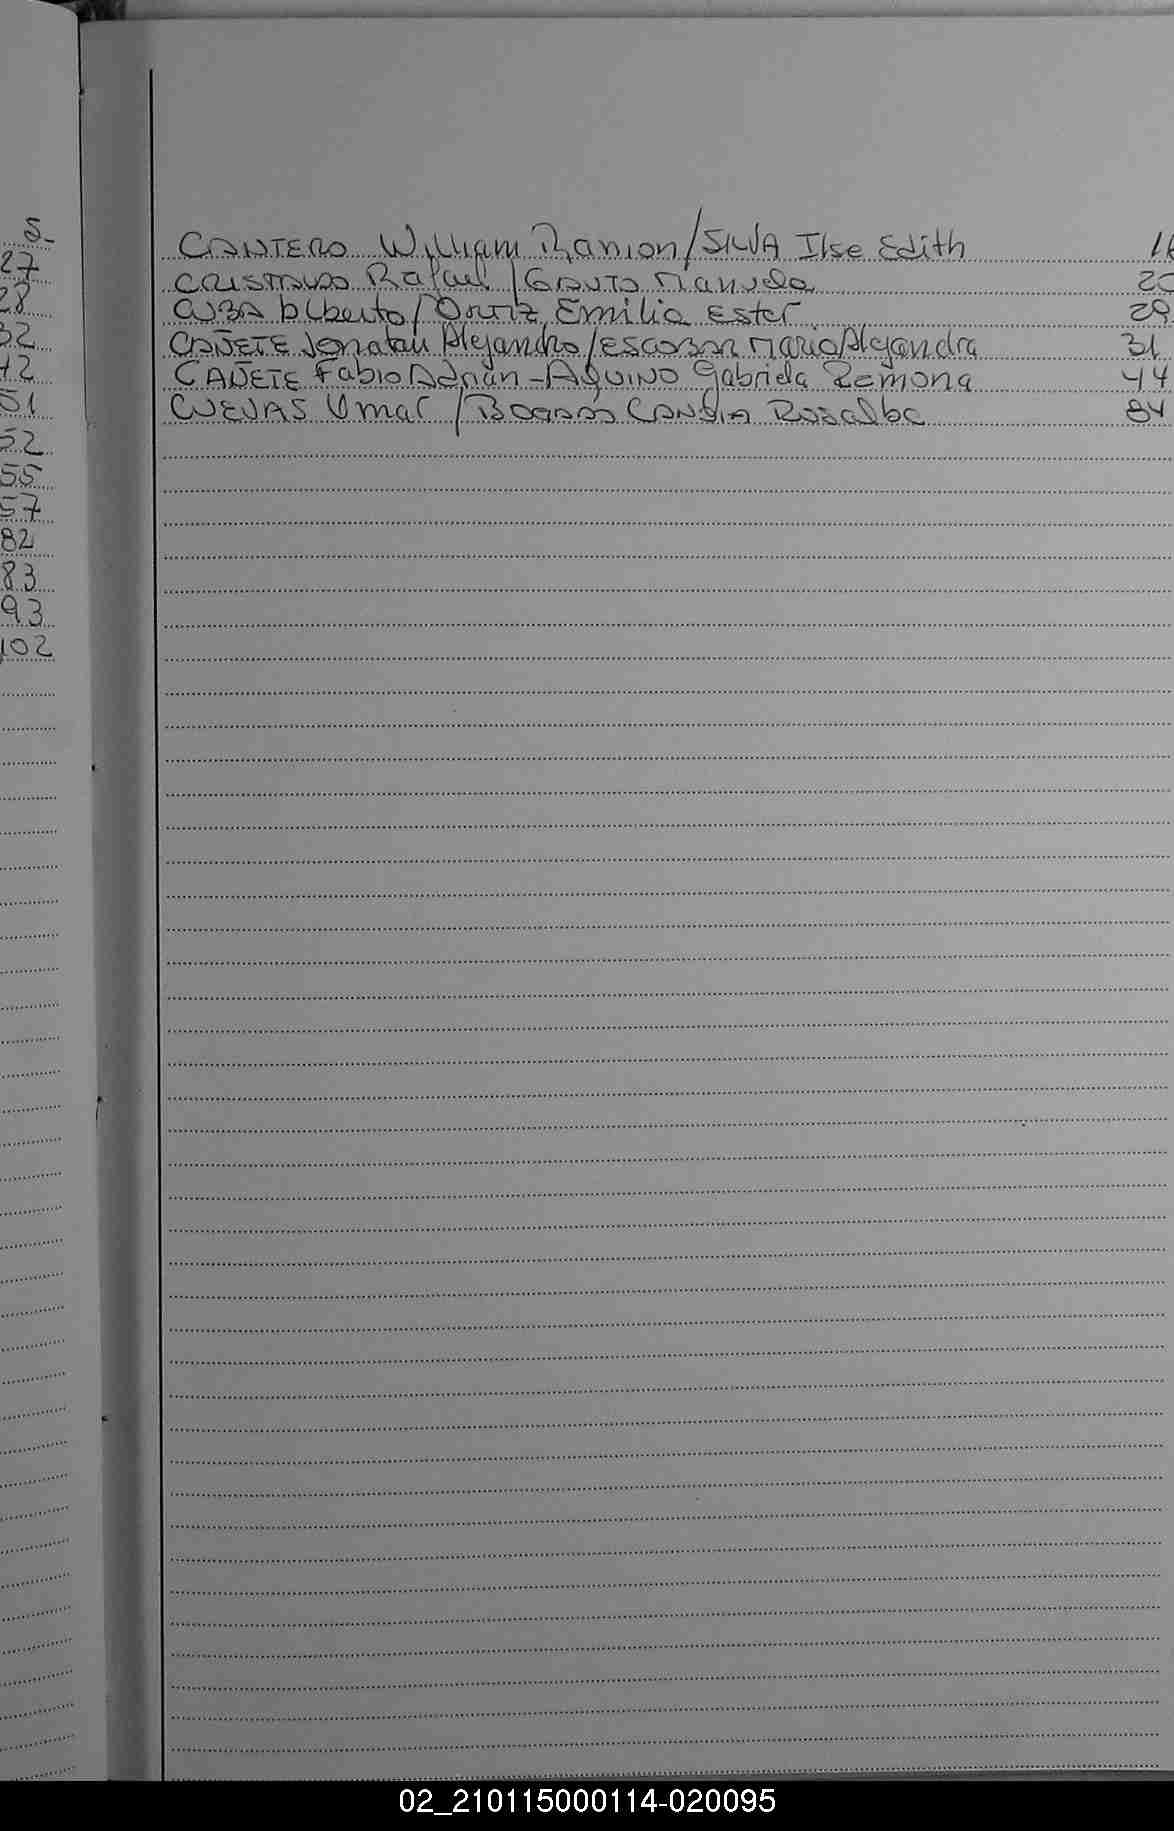 S.
27
28
32
42
51
52
55
57
82
83
93
102
CANTERO William Ramon/SILVA Ilse Edith
CRISTALDO Rafael / GAUTO Manuela 
CUBA Alberto/Ortiz Emilia Ester 29
CAÑETE Jonatan Alejandro/ESCOBAR Maria Alejandra 31
CAÑETE Fabio Adrian-AQUINO Gabriela Ramona 44
CUEVAS Omar / BOGADO CANDIA Rosalba 84
02_210115000114-020095